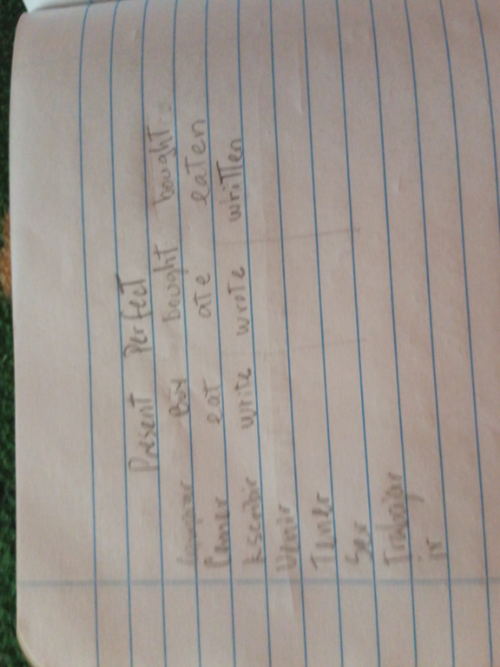 Present Perfect
Comprar Buy bought bought
Comer eat ate eaten
Escribir write wrote written
Venir
Tener
Ser
Trabajar
ir